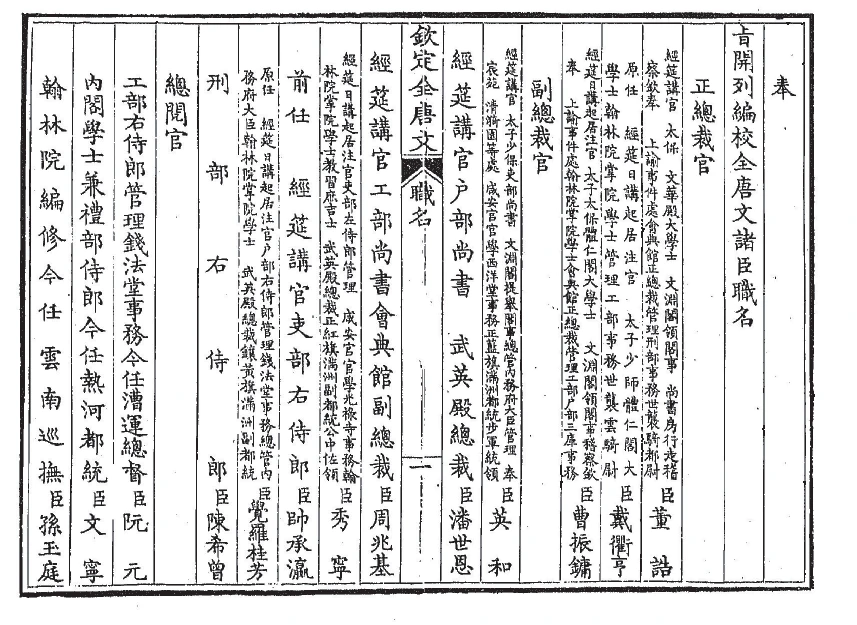 奉
旨開列編校全唐文諸臣職名
正總裁官
經筵講官 太保 文華殿大學士 文淵閣領閣事 尚書房行走稽
察欽奉 上諭事件處會典館正總裁管理刑部事務世襲騎都尉臣董誥
原任 經筵日講起居注官 太子少師體仁閣大
學士翰林院掌院學士管理工部事務世襲雲騎尉臣戴衢亨
經筵日講起居注官 太子太保體仁閣大學士 文淵閣領閣事稽察欽
奉 上諭事件處翰林院掌院學士會典館正總裁管理工部戶部三庫事務臣曹振鏞
副總裁官
經筵講官 太子少保吏部尚書 文淵閣提舉閣事總管內務府大臣管理 奉
宸苑 清漪園等處 咸安宮官學西洋堂事務正藍旗滿洲都統步軍統領臣英和
經筵講官戶部尚書 武英殿總裁臣潘世恩
欽定全唐文 職名 一
經筵講官工部尚書會典館副總裁臣周兆基
經筵日講起居注官吏部左侍郎管理 咸安宮官學光祿寺事務翰
林院掌院學士教習庶吉士 武英殿總裁正紅旗滿洲副都統公中佐領臣秀寧
前任 經筵講官吏部右侍郎臣帥承瀛
原任 經筵日講起居注官戶部右侍郎管理錢法堂事務總管內
務府大臣翰林院掌院學士 武英殿總裁鑲黃旗滿洲副都統臣覺羅桂芳
刑部右侍郎臣陳希曾
總閱官
工部右侍郎管理錢法堂事務今任漕運總督臣阮元
內閣學士兼禮部侍郎今任熱河都統臣文寧
翰林院編修今任雲南巡撫臣孫玉庭